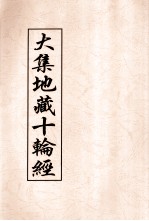 大集地藏十輪經